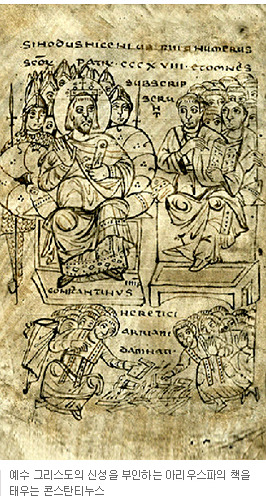 SINODUS NICENI UBI ERAT NUMERUS
SCOR PATR CCCXVIII ET OMNES
SUBSCRIP
SERU
CONSTANTINUS
HERETICI
ARRIANI
DAMNATI
예수 그리스도의 신성을 부인하는 아리우스파의 책을
태우는 콘스탄티누스